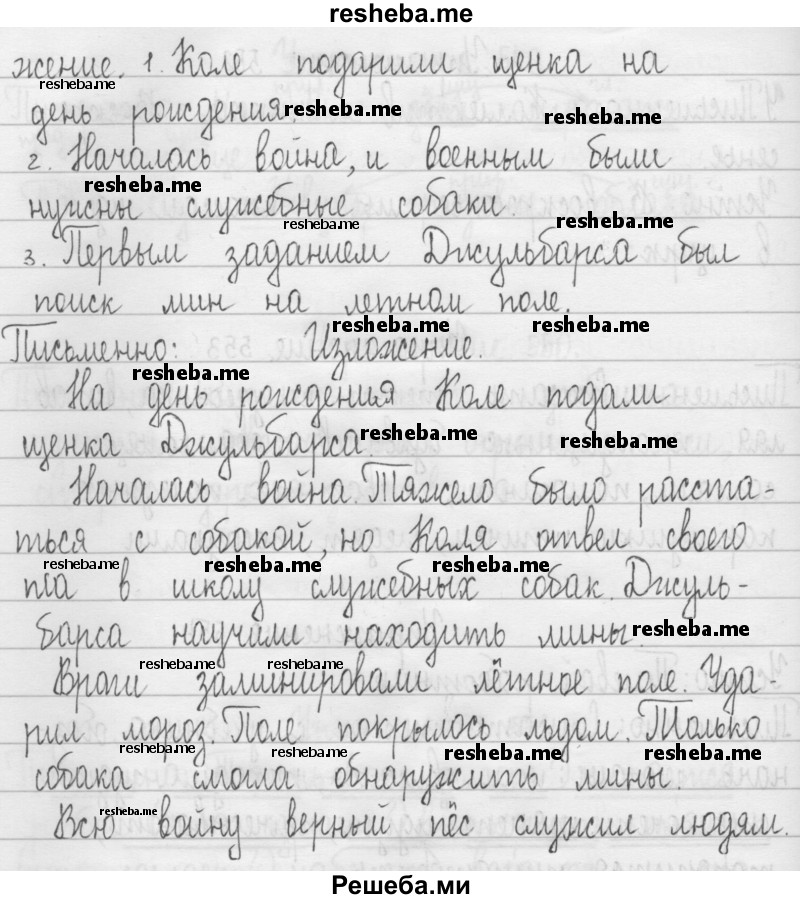 resheba.me
жение. 1. Коле подарили щенка на
resheba.me
день рождения. resheba.me resheba.me
2. Началась война, и военным были
resheba.me
нужны служебные собаки.
resheba.me resheba.me
3. Первым заданием Джульбарса был
поиск мин на летном поле.
resheba.me resheba.me
Письменно: Изложение.
resheba.me
На день рождения Коле подали
щенка Джульбарса resheba.me resheba.me
Началась война. Тяжело было расста-
ться с собакой, но Коля отвел своего
resheba.me resheba.me resheba.me
пса в школу служебных собак. Джуль-
барса научили находить мины. resheba.me
resheba.me resheba.me
Враги заминировали лётное поле. Уда-
рил мороз. Поле покрылось льдом. Только
resheba.me resheba.me resheba.me resheba.me
собака смогла обнаружить мины.
resheba.me
Всю войну верный пёс служил людям.
Решеба.ми